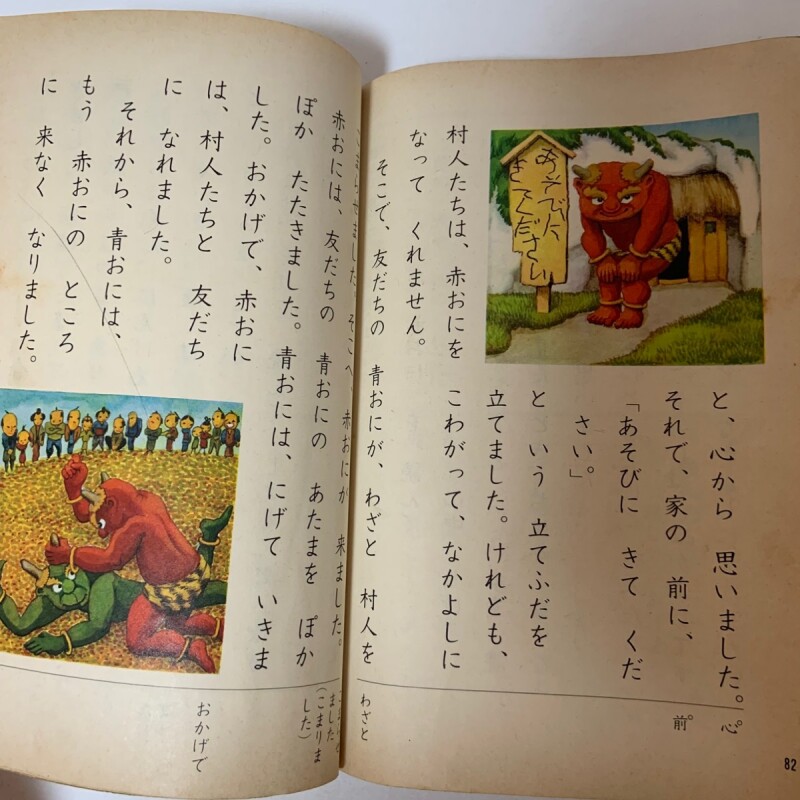 あそびに
きてください
と、心から 思いました。
それで、家の 前に、
「あそびに きて くだ
さい。」
と いう 立てふだを
立てました。けれども、
村人たちは、赤おにを こわがって、なかよしに
なって くれません。
そこで、友だちの 青おにが、わざと 村人を
心
前
わざと
82
こまらせました。そこへ、赤おにが 来ました。
赤おには、友だちの 青おにの あたまを ぽか
ぽか たたきました。青おには、にげて いきま
した。おかげで、赤おに
は、村人たちと 友だち
に なれました。
それから、青おには、
もう 赤おにの ところ
に 来なく なりました。
ました
(こまりま
した)
おかげで